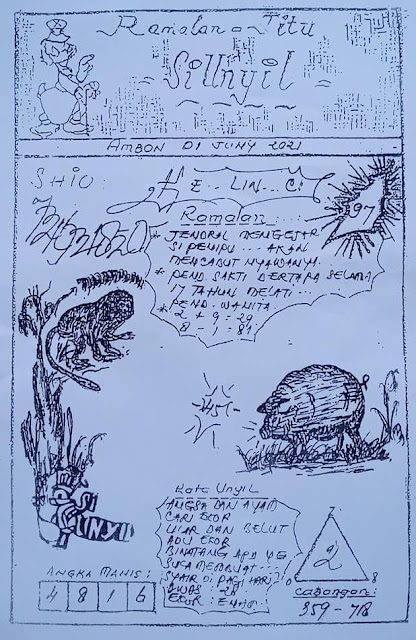 Ramalan = Jitu
= SiUnyil =
AMBON DI JUNY 2021
SHIO :
H E.. LIN.. C.
97
Ramalan
* JENDRAL MENGEJAR
SI PENIPU... AKAN
MENCABUT NYAWANYA.
* PEND. SAKTI BERTAPA SELAMA
17 TAHUN MELATI..
* PEND. WANITA.
2 + 9 = 29
8 - 1 = 81
SI
UNYIL
Kata Unyil
ANGSA DAN AYAM
CARI EKOR
ULAR DAN BELUT
ADU EKOR
BINATANG APA YG
SUKA MEMBUAT...
SYAIR DI PAGI HARI
AWAS : 28
EKOR : ENAM.!
ANGKA MANIS :
4 8 1 6
7
2
0 8
CABANGAN :
359 - 718